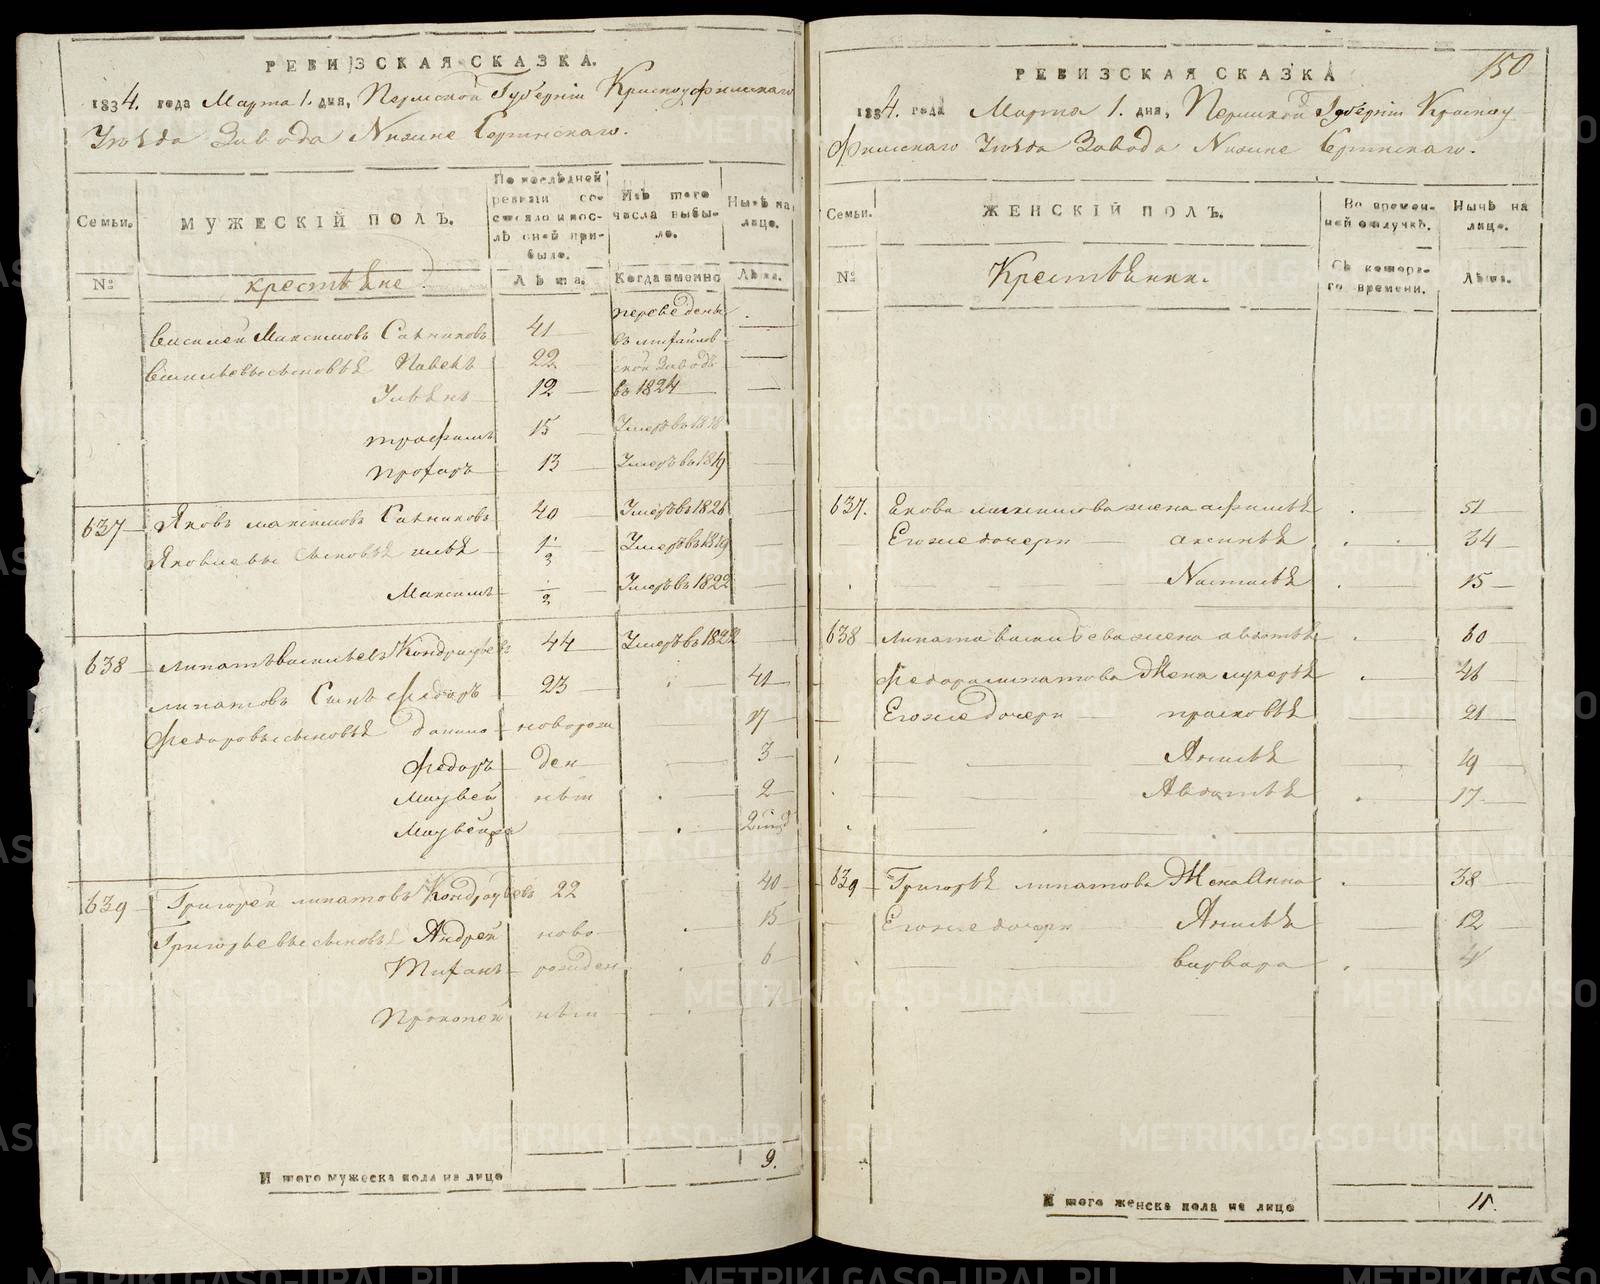 РЕВИЗСКАЯ СКАЗКА.
1834. года Марта 1. дня, Пермской Губерніи Красноуфимскаго
Уѣзда Завода Нижне Сергинскаго.
Семьи.
МУЖЕСКІЙ ПОЛЪ.
По послѣдней ревизіи состояло и послѣ оной прибыло.
Изъ того числа выбыло.
Нынѣ на лицо.
№
крестьяне.
Лѣта.
Когда именно
Лѣта.
Василей Максимовъ Сажниковъ 41 переведены
Васильевы сыновья Павелъ 22
Иванъ 12 въ 1824
трофимъ 15 Умеръ въ 1818
профиръ 13 Умеръ въ 1819
637 Яковъ максимовъ Сажниковъ 40 Умеръ въ 1826
Яковлевы Сыновья илья Умеръ въ 1819
Максимъ Умеръ въ 1822
638 липатъ васильевъ Кондратьевъ 44 Умеръ въ 1822
липатовъ Сынъ федоръ 23 41
федоровы сыновья данило новорож 17
федоръ ден 3
Матвей нѣт 2
Матвей 2
639 Григорей липатовъ Кондратьевъ 22 40
Григорьевы сыновья Андрей ново 15
рожден 6
Прокопей нѣт 1
Итого мужеска пола на лицо 9.
150
РЕВИЗСКАЯ СКАЗКА
1834. года Марта 1. дня, Пермской Губерніи Красноу
фимскаго Уѣзда Завода Нижне Сергинскаго.
Семьи.
ЖЕНСКІЙ ПОЛЪ.
Во временной отлучкѣ.
Нынѣ на лицо.
№
Крестьянки.
Съ котораго времени.
Лѣта.
637. Екова максимова жена афимья 51
Его же дочери аксинья 34
Настасья 15
638 липата васильева жена авдотья 60
федора липатова Жена лукерья 46
Его же дочери прасковья 21
Анисья 19
Авдотья 17
639 Григорья липатова Жена Анна 38
Его же дочери Анисья 12
варвара 4
Итого женска пола на лицо 11.
METRIKI.GASO-URAL.RU